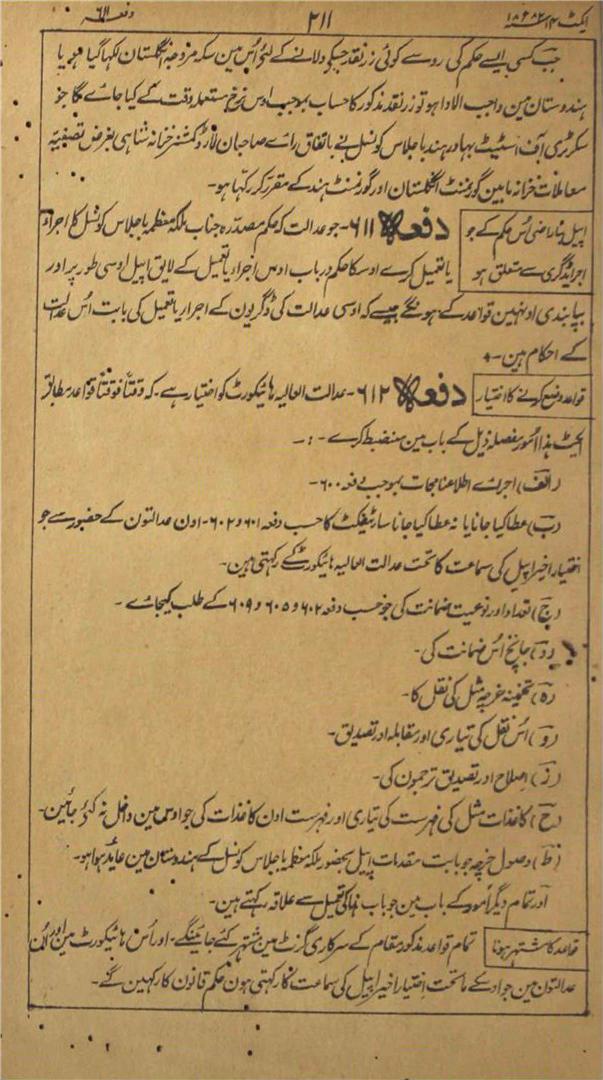 ایکٹ ۱۴ ۱۸۸۲ ۲۱۱ دفعہ ۶۱۱
جب کسی ایسے حکم کی رو سے کوئی زر نقد جسکو دلانے کے لئے اُس مین سکہ مروجہ انگلستان لکھا گیا ہو یا
ہندوستان مین واجب الادا ہو تو زر نقد مذکور کا حساب بموجب اوس نرخ مستعملہ وقت کے کیا جاے گا جو
سکرٹری آف اسٹیٹ بہادر ہند باجلاس کونسل نے باتفاق راے صاحبان لارڈ کمشنر خزانہ شاہی بغرض تصفیہ
معاملات خزانہ مابین گورنمنٹ انگلستان اور گورنمنٹ ہند کے مقرر کر رکہا ہو۔
اپیل بناراضی اُس حکم کے جو
اجراے ڈگری سے متعلق ہو
دفعہ ۶۱۱۔ جو عدالت کہ حکم مصدرہ جناب ملکہ معظمہ باجلاس کونسل کا اجراء
یا تعمیل کرے اوسکا حکم درباب اوس اجراء یا تعمیل کے لایق اپیل اوسی طور پر اور
بپابندی اونہین قواعد کے ہونگے جیسے کہ اوسی عدالت کی ڈگریون کے اجراء یا تعمیل کی بابت اُس عدالت
کے احکام ہین۔
قواعد وضع کرنے کا اختیار
دفعہ ۶۱۲۔ عدالت العالیہ ہائیکورٹ کو اختیار ہے۔ کہ وقتاً فوقتاً قواعد مطابق
ایکٹ ہذا امور مفصلہ ذیل کے باب مین منضبط کرے۔:۔
(الف) اجراے اطلاعنامجات بموجب دفعہ ۶۰۰۔
(ب) عطا کیا جانا یا نہ عطا کیا جانا سارٹیفکٹ کا حسب دفعہ ۶۰۱ و ۶۰۲۔ اون عدالتون کے حضور سے جو
اختیار اخیر اپیل کی سماعت کا تحت عدالت العالیہ ہائیکورٹ کے رکہتی ہین۔
(ج) تعداد اور نوعیت ضمانت کی جو حسب دفعہ ۶۰۲ و ۶۰۵ و ۶۰۹ کے طلب کیجاے۔
(د) جانچ اُس ضمانت کی۔
(ہ) تخمینہ خرچہ مثل کی نقل کا۔
(و) اُس نقل کی تیاری اور مقابلہ اور تصدیق۔
(ز) اصلاح اور تصدیق ترجمون کی۔
(ح) کاغذات مثل کی فہرست کی تیاری اور فہرست اون کاغذات کی جو اوس مین داخل نہ کئے جائین۔
(ط) وصول خرچہ جو بابت مقدمات اپیل بحضور ملکہ معظمہ باجلاس کونسل کے ہندوستان مین عاید ہوا ہو۔
اور تمام دیگر امور کے باب مین جو باب ہذا کی تعمیل سے علاقہ رکہتے ہین۔
قواعد کا مشتہر ہونا
تمام قواعد مذکور مقام کے سرکاری گزٹ مین مشتہر کئے جائینگے۔ اور اُس ہائیکورٹ مین اور اُن
عدالتون مین جو اوسکے ماتحت اختیار اخیر اپیل کی سماعت کا رکہتی ہون حکم قانون کا رکہین گے۔